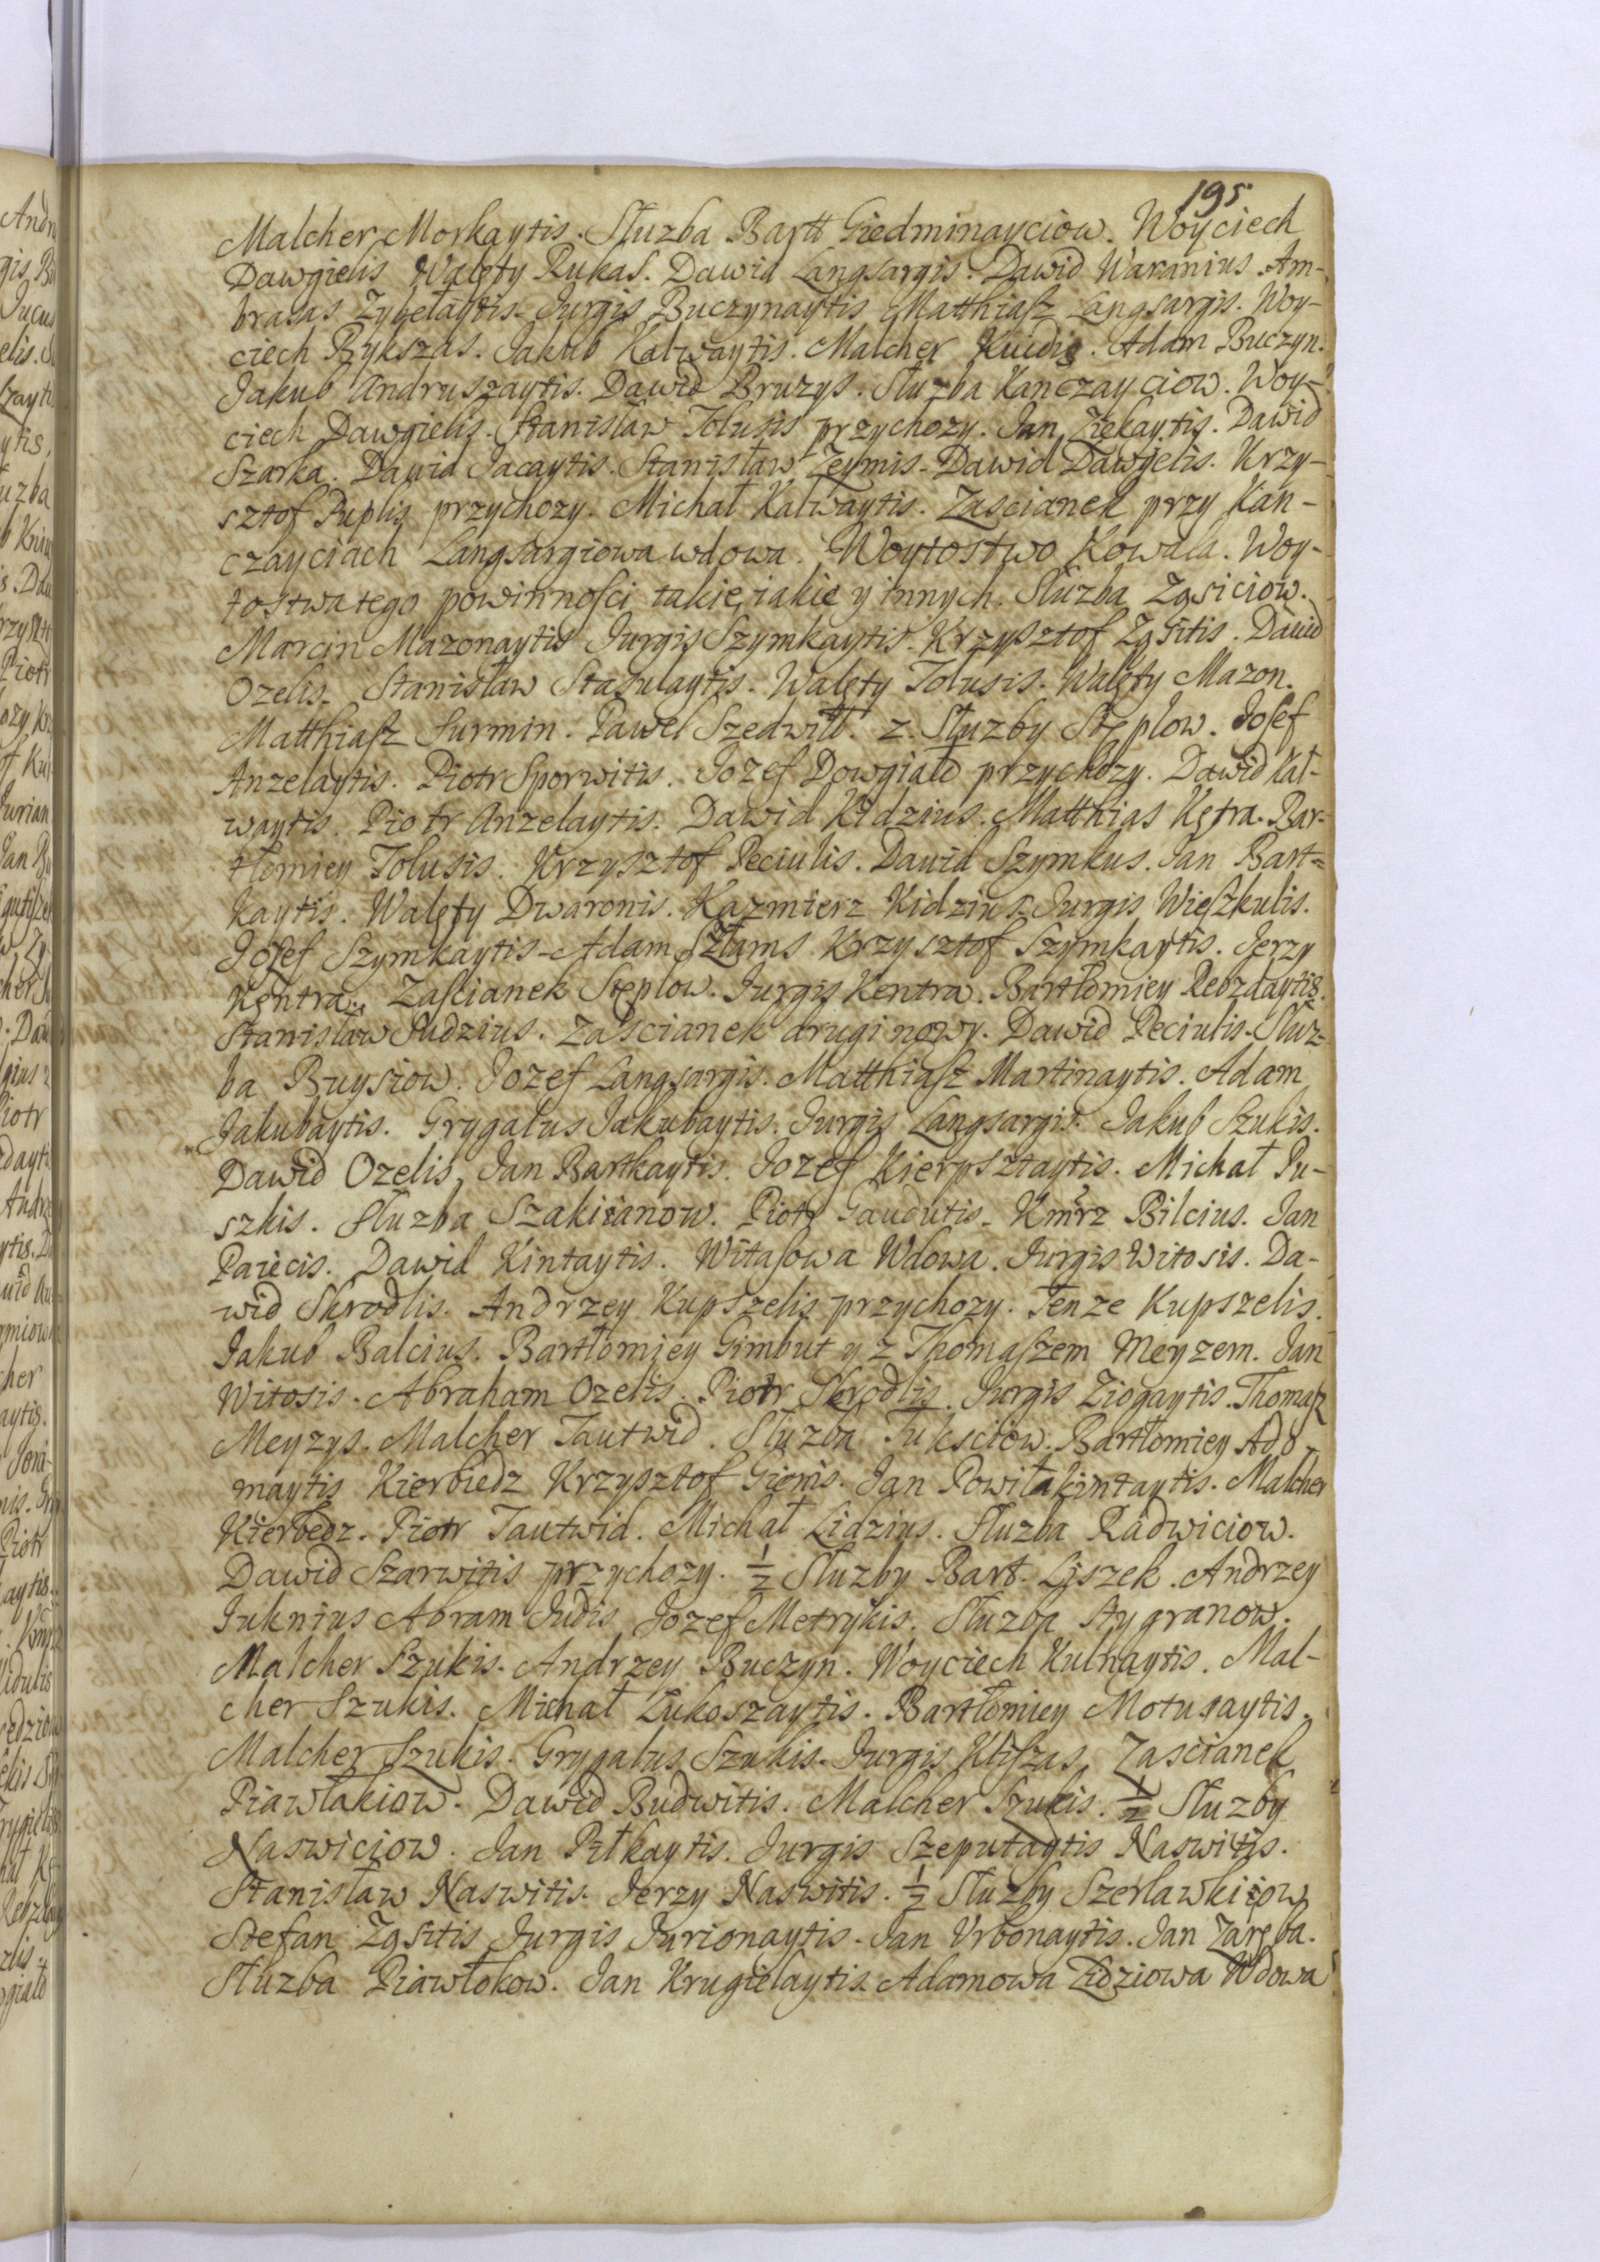 195
Malcher Morkaytis. Służba Bartt Giedminayciow. Woyciech
Dawgielis Walęty Rukas. Dawid Langsargis. Dawid Waranius. Am-
brasas Zybelaytis. Jurgis Buczynaytis Matthiasz Langsargis. Woy-
ciech Rykszas. Jakub Kalwaytis. Malcher Kuidis. Adam Buczyn.
Jakub Andruszaytis. Dawid Bruzys. Służba Kanczayciow. Woy-
ciech Dawgielis. Stanisław Tolusis przychozy. Jan Ziekaytis. Dawid
Szarka. Dawid Jacaytis. Stanisław Zeymis. Dawid Dawgielis. Krzy-
sztof Puplis przychozy. Michał Kalwaytis. Zascianek przy Kan-
czayciach Langsargiowa wdowa. Woytostwo Kowala. Woy-
tostwa tego powinnosci takie, iakie y innych. Służba Ząsiciow.
Marcin Mazonaytis Jurgis Szymkaytis. Krzysztof Ząsitis. Dawid
Ozelis. Stanisław Stasulaytis. Walęty Tolusis. Walęty Mazon.
Matthiasz Surmin. Paweł Szedwiłł. z. Służby Stęplow. Josef
Anzelaytis. Piotr Sporwitis. Jozef Dowgiałd przychozy. Dawid Kal-
waytis. Piotr Anzelaytis. Dawid Kidzius. Matthias Kętra. Bar-
tłomiey Tolusis. Krzysztof Peciulis. Dawid Szymkus. Jan Bart=
kaytis. Walęty Dwaronis. Kazmierz Kidzius. Jurgis Wieszkulis.
Jozef Szymkaytis. Adam Szłams. Krzysztof Szymkaytis. Jerzy
Kentra. Zascianek Stęplow. Jurgis Kentra. Bartłomiey Rebzdaytis.
Stanisław Sudzius. Zascianek drugi nowy. Dawid Peciulis. Służ=
ba Buysiow. Jozef Langsargis. Matthiasz Martinaytis. Adam
Jakubaytis. Grygalus Jakubaytis. Jurgis Langsargis. Jakub Szukis.
Dawid Ozelis, Jan Bartkaytis. Jozef Kierpsztaytis. Michał Pu-
szkis. Służba Szakicianow. Piotr Gaudutis. Kmrz Bilcius. Jan
Paiecis. Dawid Kintaytis. Witasowa Wdowa. Jurgis Witosis. Da-
wid Skrodlis. Andrzey Kupszelis przychozy. Tenze Kupszelis.
Jakub Balcius. Bartłomiey Gimbut y z Thomaszem Meyzem. Jan
Witosis. Abraham Ozelis. Piotr Skrodlis. Jurgis Ziogaytis. Thomasz
Meyzys. Malcher Tautwid. Służba Tuksciow. Bartłomiey Ado-
maytis Kierbiedz Krzysztof Gienis. Jan Powiłakintaytis. Malcher
Kierbedz. Piotr Tautwid. Michał Lidzius. Służba Radwiciow.
Dawid Szarwitis przychozy. 1/2 Służby Bart. Liszek. Andrzey
Juknius Abram Judis Jozef Metrykis. Służba Stygranow.
Malcher Szukis. Andrzey Buczyn. Woyciech Kulnaytis. Mal-
cher Szukis. Michał Lukoszaytis. Bartłomiey Motusaytis.
Malcher Szukis. Grygalus Szukis. Jurgis Kliszas. Zascianek
Piawłakiow. Dawid Budwitis. Malcher Szukis. 1/2 Służby
Naswiciow. Jan Piłkaytis. Jurgis Szeputaytis Naswitis.
Stanisław Naswitis. Jerzy Naswitis. 1/2 Służby Szerlawkiiow
Stefan Ząsitis Jurgis Jurionaytis. Jan Vrbonaytis. Jan Zaręba.
Służba Piawłokow. Jan Krugielaytis. Adamowa Zidziowa Wdowa